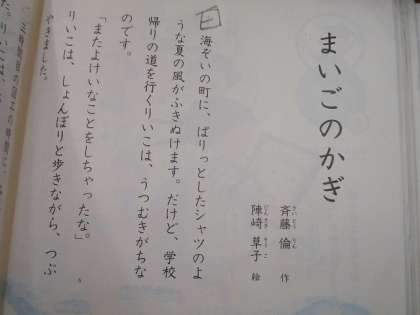 まいごのかぎ
斉藤 倫 作
さいとう りん
陣崎 草子 絵
じんさき そうこ
日
海ぞいの町に、ぱりっとしたシャツのよ
うな夏の風がふきぬけます。だけど、学校
帰りの道を行くりいこは、うつむきがちな
のです。
「またよけいなことをしちゃったな。」
りいこは、しょんぼりと歩きながら、つぶ
やきました。
5